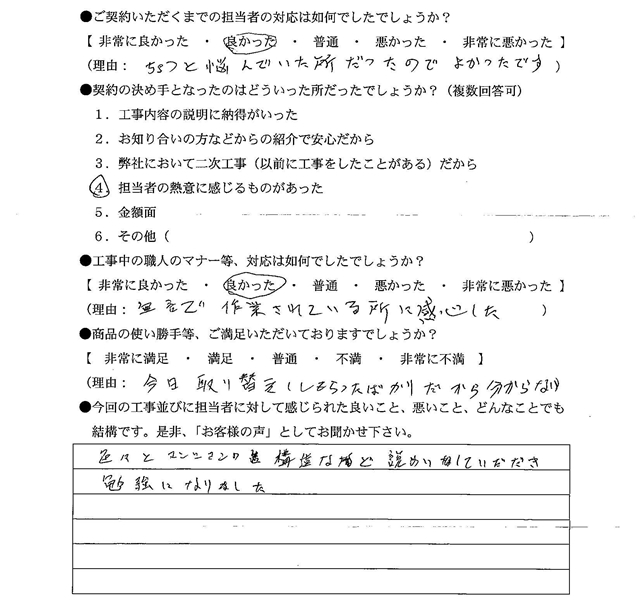 ●ご契約いただくまでの担当者の対応は如何でしたでしょうか？
【 非常に良かった ・ 良かった ・ 普通 ・ 悪かった ・ 非常に悪かった 】
(理由： ちょっと悩んでいた所だったので よかったです )
●契約の決め手となったのはどういった所だったでしょうか？（複数回答可）
１．工事内容の説明に納得がいった
２．お知り合いの方などからの紹介で安心だから
３．弊社において二次工事（以前に工事をしたことがある）だから
４．担当者の熱意に感じるものがあった
５．金額面
６．その他（ ）
●工事中の職人のマナー等、対応は如何でしたでしょうか？
【 非常に良かった ・ 良かった ・ 普通 ・ 悪かった ・ 非常に悪かった 】
(理由： で 作業されている所に感心した )
●商品の使い勝手等、ご満足いただいておりますでしょうか？
【 非常に満足 ・ 満足 ・ 普通 ・ 不満 ・ 非常に不満 】
(理由： 今日 取り替えしてもらったばかりだから分からない)
●今回の工事並びに担当者に対して感じられた良いこと、悪いこと、どんなことでも
結構です。是非、「お客様の声」としてお聞かせ下さい。
色々と 構造など 説明していただき
勉強になりました